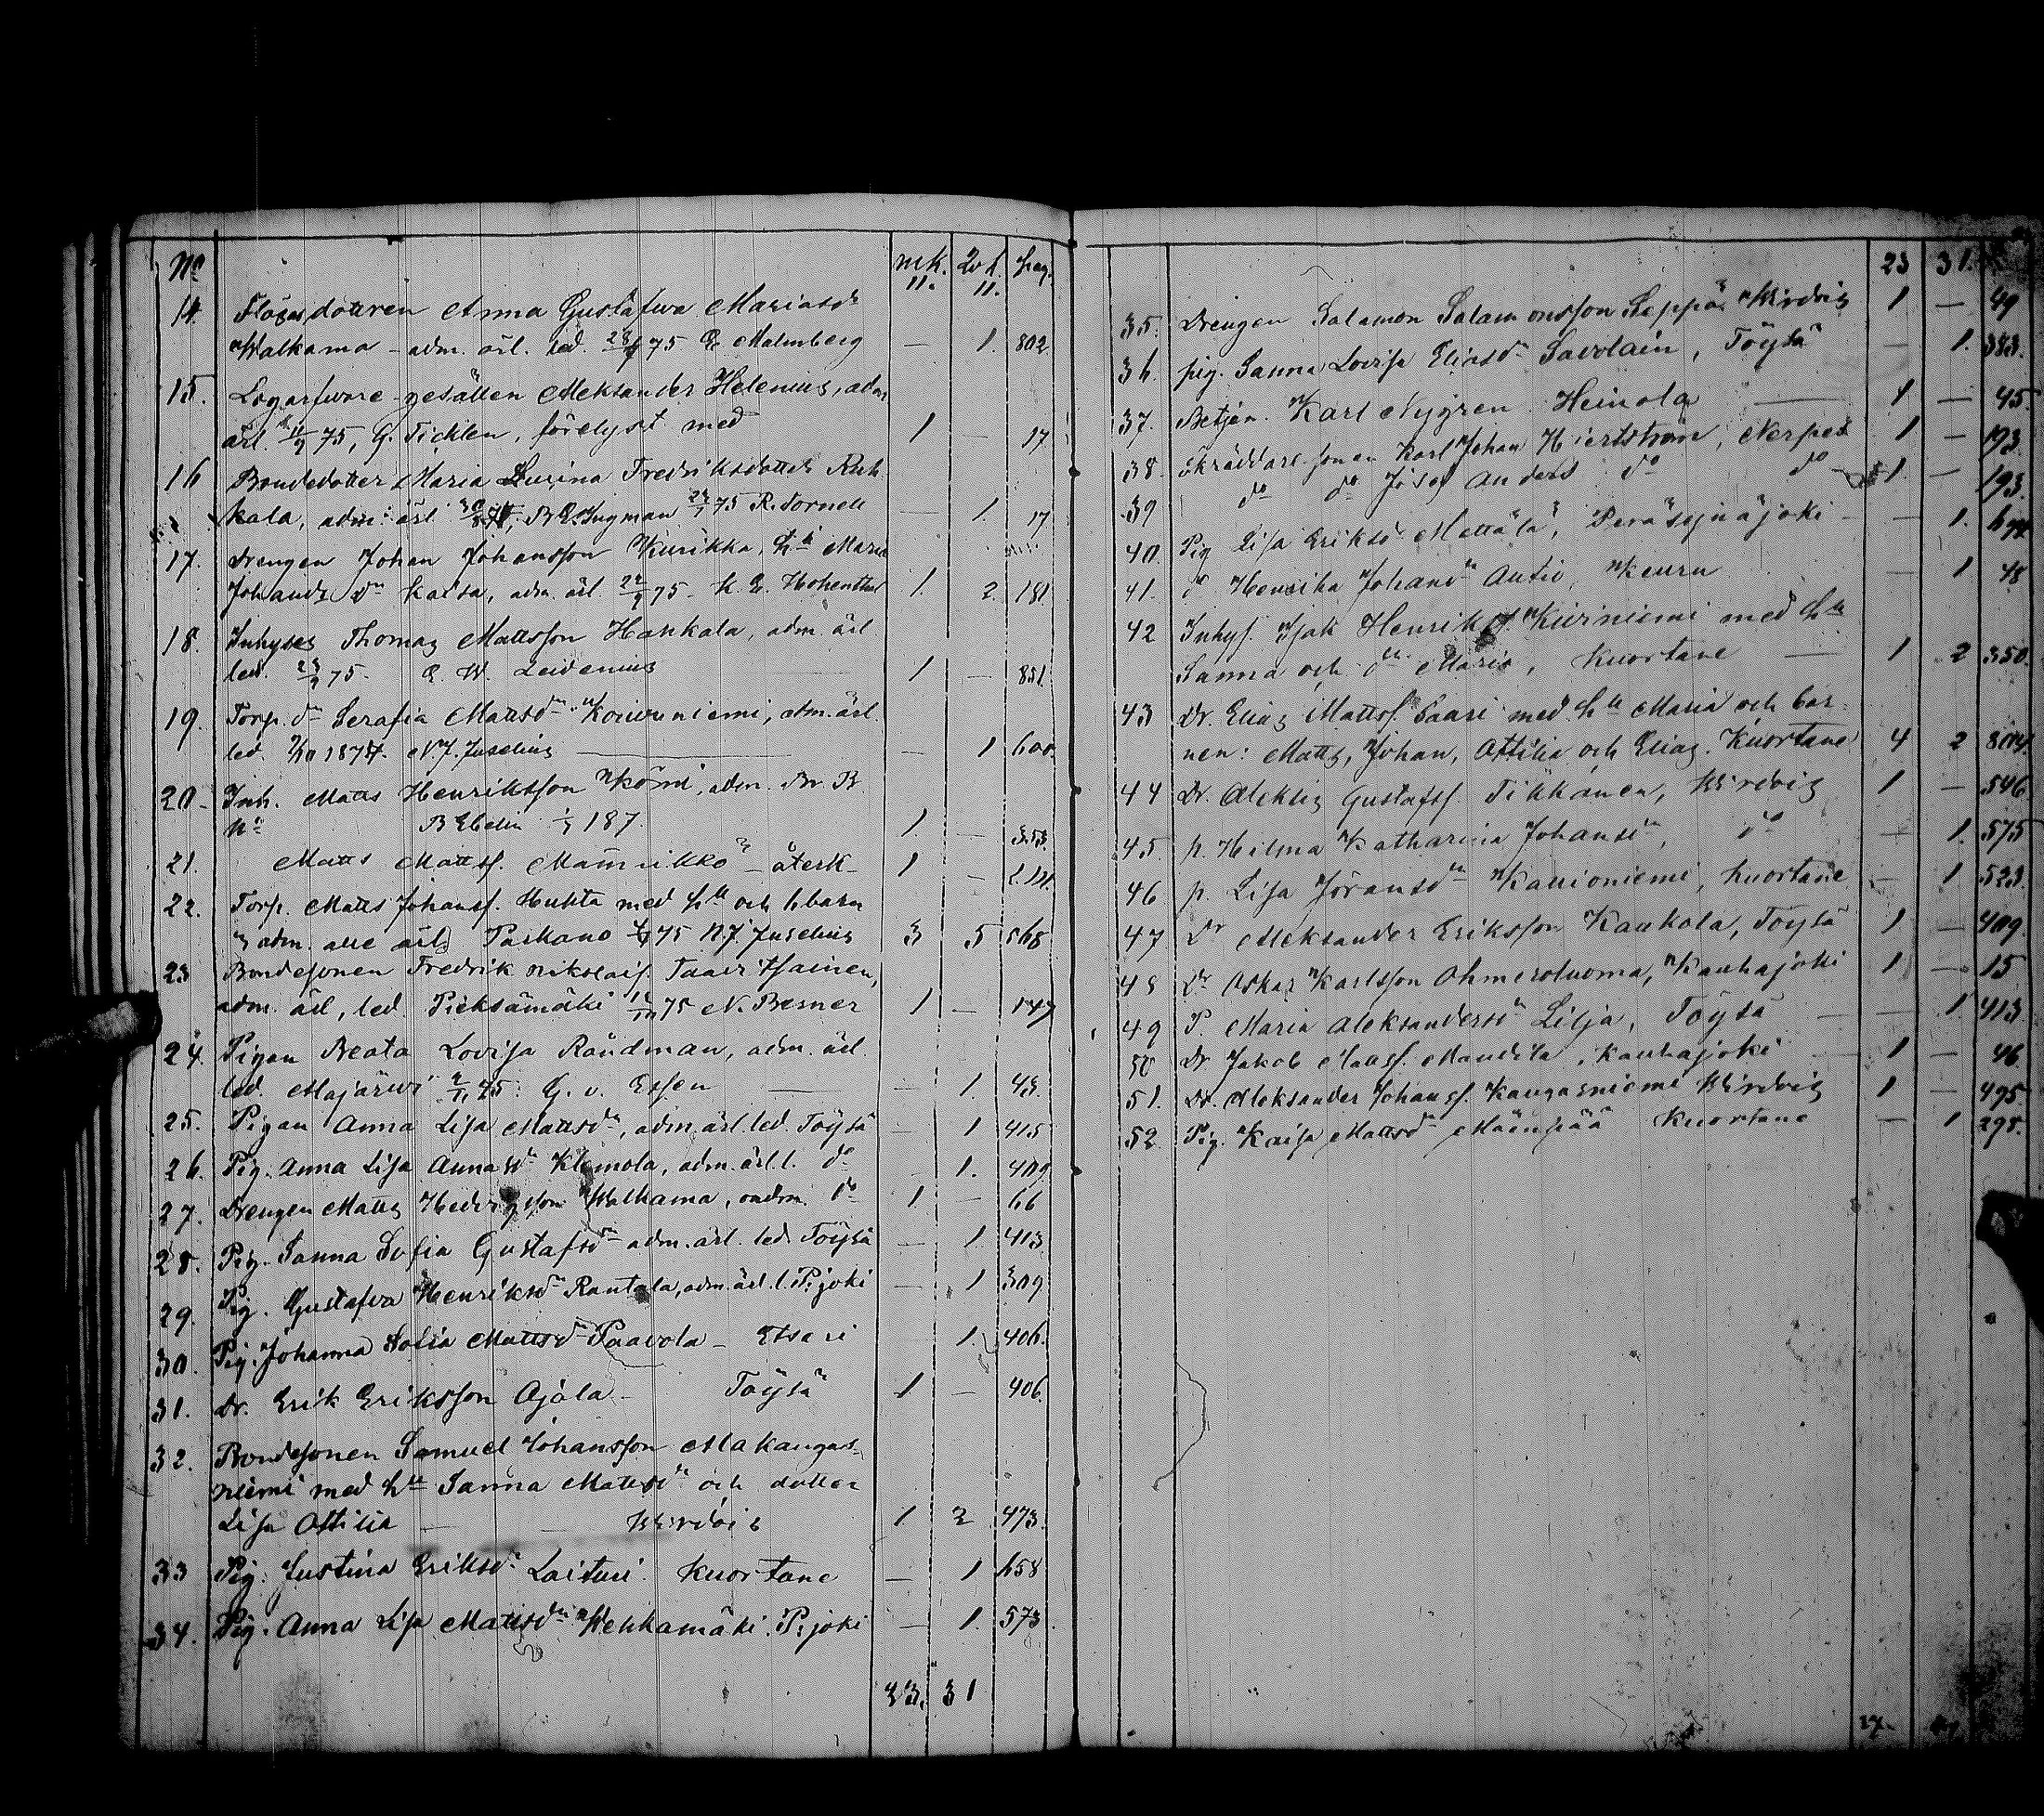 No mk. Qv k. pag.
11. 11.
14. dottren Anna Gustafwa Mariasdr
Walkama - adm. ärl. led. 75 E. Malmberg — 1. 802
15. Logarfware-gesällen Aleksander Helenius, adm
ärl 75, G. Ticklen, förelyst med 1 — 17
16 Bondedotter Maria Lusina Fredriksdotter Ruh
kala, adm. ärl Ingman 75 R. Tornell — 1. 17
17. Drengen Johan Johansson Kurikka, hu Maria
Johansdr dr Kaisa, adm. ärl 22/9 75 - K. E. Hohenthal 1. 2 181
18. Inhyses Thomas Mattsson Hakkala, adm. ärl
led. 23/9 75. E. W. Leidenius 1 — 851.
19. Torp. dr Serafia Mattsdr Koivuniemi, adm. ärl.
led. 1874. N. J. Juselius — 1 600.
20. Inh. Matts Henriksson Kömi, adm. Br. B.
No B Ebelin 187. 1. — 353.
21. Matts Mattsf. Männikkö - återk- 1 —
22. Torp. Matts Johansf. Huhta med hu och 6 barn
adm. alle ärl. Parkano 75 N. J. Juselius 3 5 568
23 Bondesonen Fredrik Tavitsainen,
adm. ärl, led Pieksämäki 75 N. Besner 1 — 147
24. Pigan Beata Lovisa Rändman, adm. ärl.
led. Alajärwi 75. G. v. Essen — 1. 43.
25. Pigan Anna Lisa Mattsdr, adm. ärl. led. Töysä — 1 415
26. Pig. Anna Lisa Annasdr Klemola, adm. ärl. l. do — 1. 409
27. Drengen Matts Hedvigsson Walkama, do 1 — 66
28. Pig. Sanna Sofia Gustafsdr adm. ärl. led. Töysä — 1. 413
29. Pig. Gustafva Henriksdr Rantala, adm. ärl. l. P:joki — 1 309
30. Pig. Johanna Sofia Mattsdr Paavola - Etseri 1. 406.
31. Dr. Erik Eriksson Ojala - Töysä 1 — 406.
32. Bondesonen Samuel Johansson Alakangas-
niemi med hu Sanna Mattsdr och dotter
Lisa Ottilia — — Wirdois 1. 2 473.
33 Pig. Justina Eriksdr Laituri. Kuortane — 1 658
34. Pig. Anna Lisa Mattsdr Wehkamäki. P:joki — 1. 573.
23. 31
23 31.
35. Drengen Salamon Salamonsson Seppä, Wirdois 1 — 49
36. pig. Sanna Lovisa Eliasdr Savolain, Töysä — 1. 383.
37. Betjen. Karl Nygren Heinola — 1 — 45.
38. Skräddare sonen Karl Johan Hiertström, Nerpes 1 — 193.
39 do do Josef Anders do do 1. — 193.
40. Pig Lisa Eriksdr Mattälä, Peräseinäjoki — — 1.
41. do Henrika Johansdr Autio, Keuru — 1 48
42 Inhys. Isak Henriksf. Kurniemi med hu
Sanna och dr Maria, Kuortane — 1 2 350.
43 Dr. Elias Mattsf. Saari med hu Maria och bar-
nen: Matts, Johan, Ottilia och Elias. Kuortane 4 2 804.
44 Dr. Aleksis Gustafsf. Tikkanen, Wirdois 1 — 546.
45. p. Hilma Katharina Johansdr, do — 1. 575
46 p. Lisa Jöransdr Kauoniemi, Kuortane — 1. 523.
47 Dr Aleksander Eriksson Kaukola, Töysä 1 — 409.
48 Dr Oskar Karlsson Ohmeroluoma, Kauhajoki 1 — 15
49 P. Maria Aleksandersdr Lilja, Töysä — — 1. 413
50 Dr. Jakob Mattsf. Mandila, Kauhajoki — 1 — 46.
51. Dr. Aleksander Johansf. Kangasniemi Wirdois 1 — 495
52 Pig. Kaisa Mattsdr Mäenpää Kuortane — 1 298.